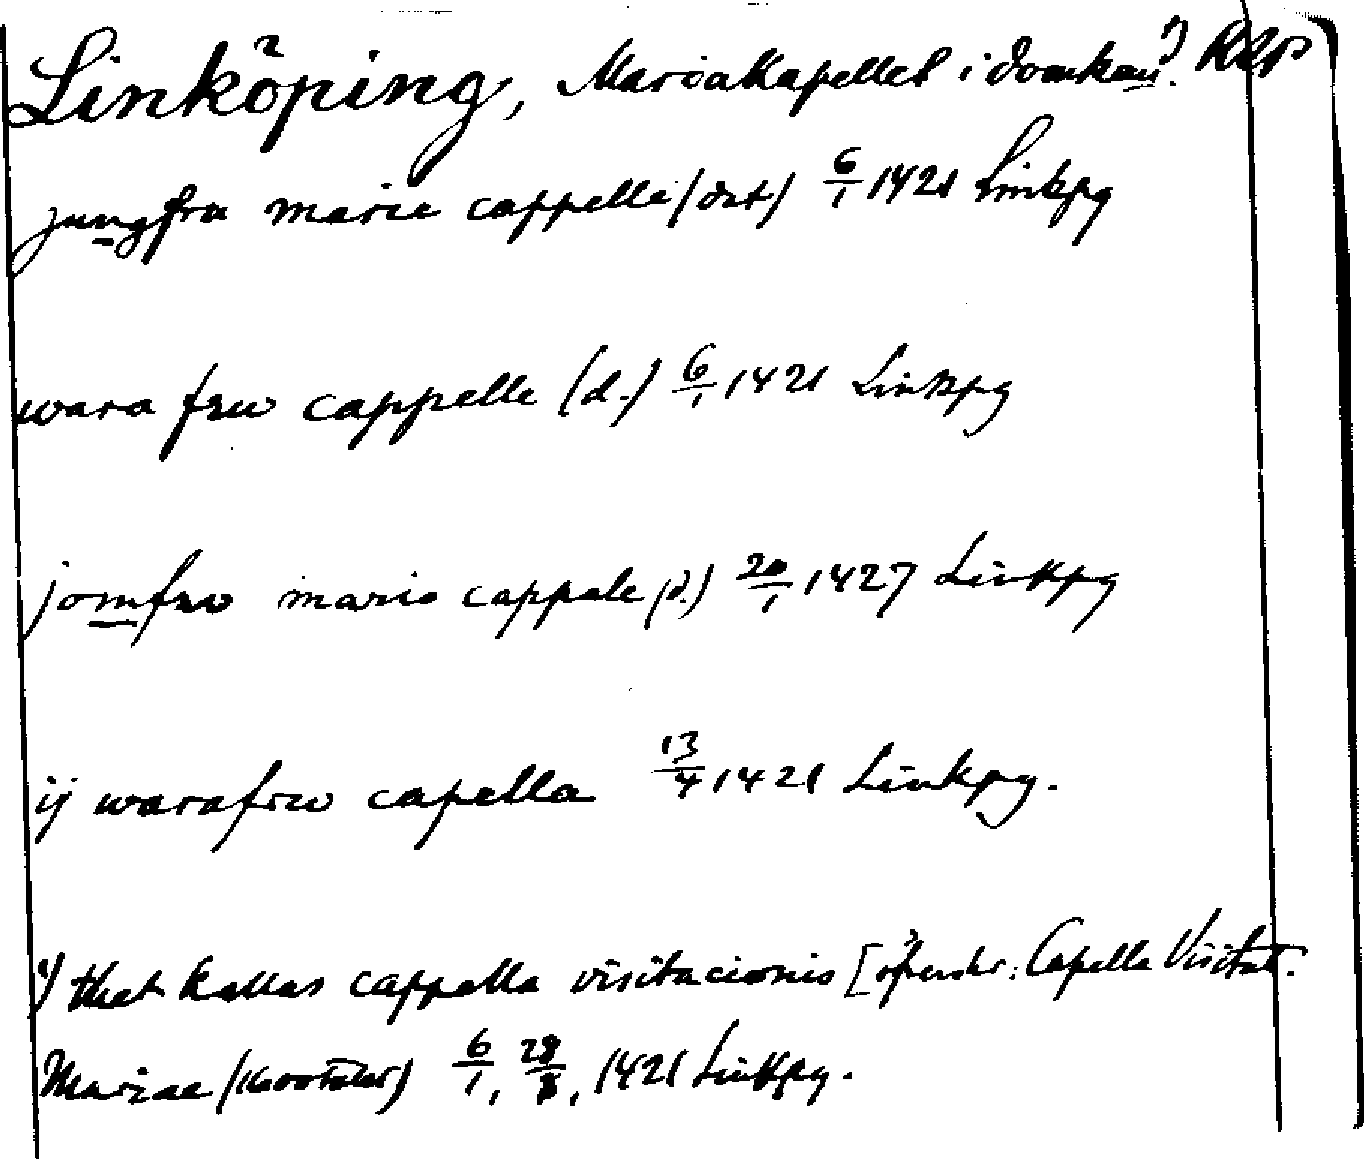 Linköping, Mariakapellet i domkan¹⁾.
jungfru marie cappelle (dat) 6/1 1421 Linkpg
wara frw cappelle (d.) 6/1 1421 Linkpg
jomfrw marie cappele (d.) 20/1 1427 Linkpg
ij warafrw capella 13/4 1421 Linkpg.
¹⁾ thet kallas cappella visitacionis [ Capella Visitat.
Mariae (1600-talet) 6/1, 28/8, 1421 Linkpg.